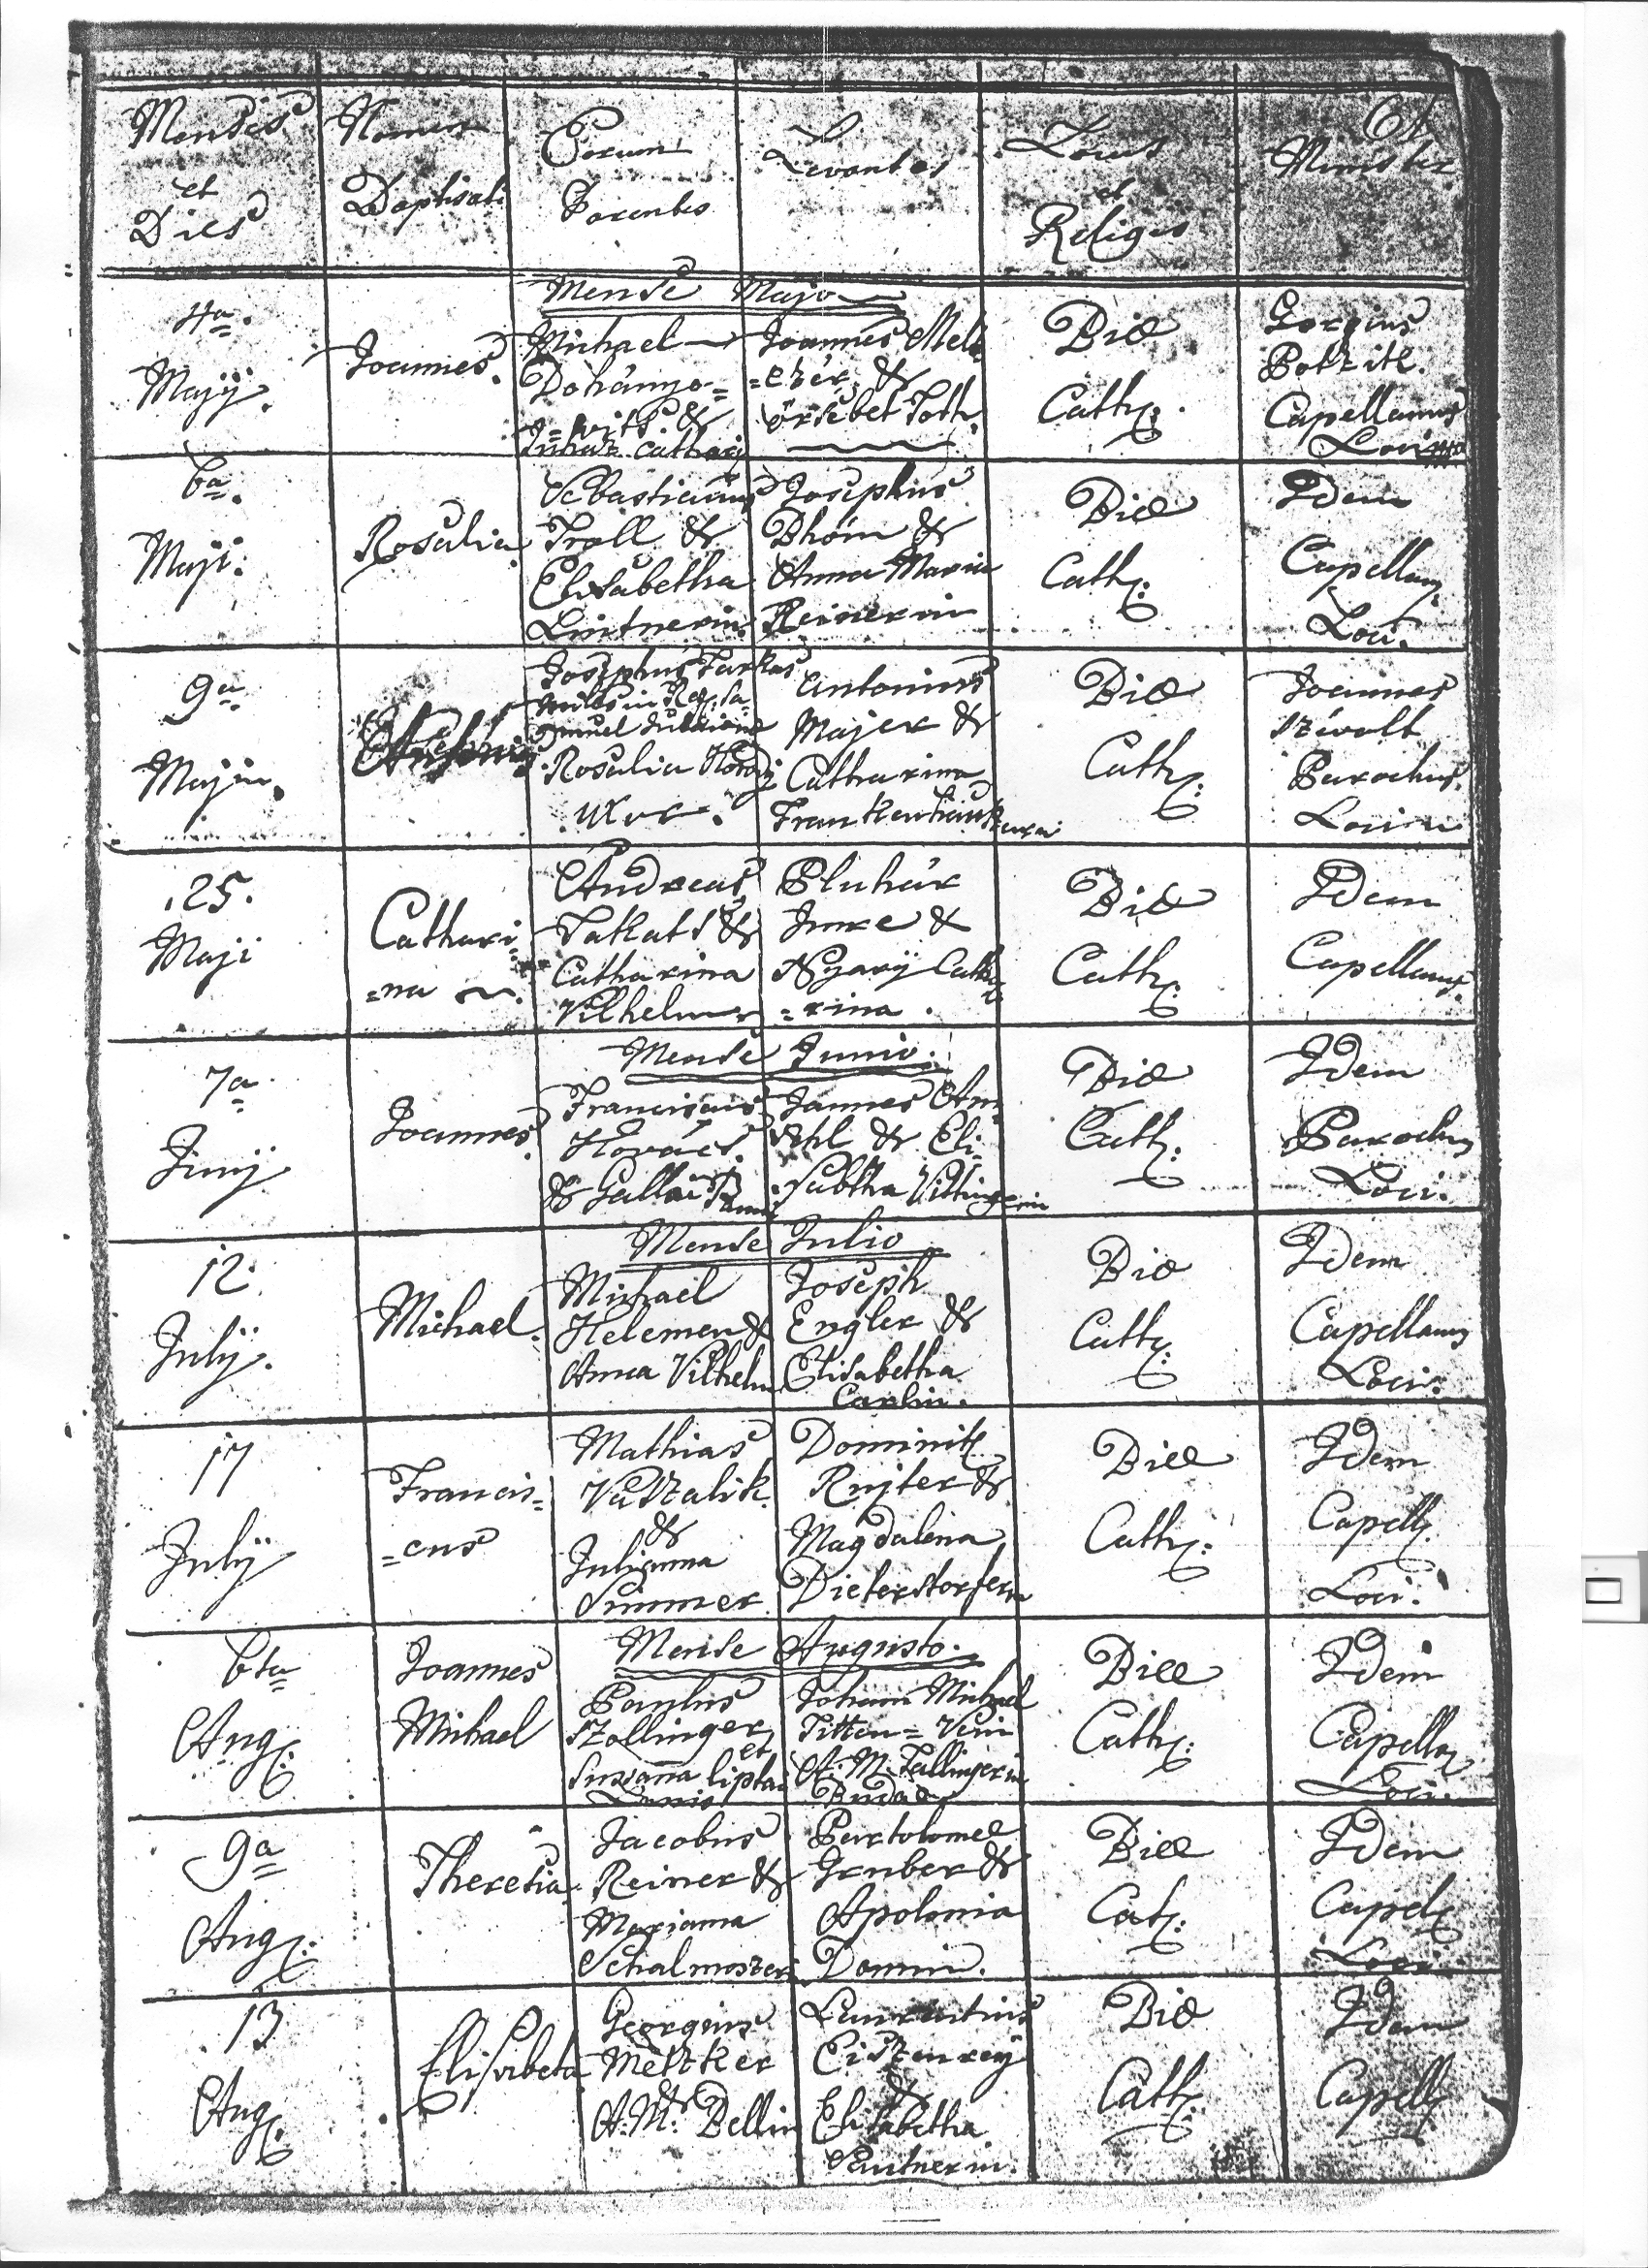 Mensis
et
Dies
Nomen
Baptisati
Eorum
Parentes
Levantes
Locus
et
Religio
Minister
Mense Majo
4a
Majÿ.
Joannes.
Michael
Dohányo=
=vits &
Juhaz Cathari
Joannes Mel=
=czér &
örsebet Toth.
Biæ
Cath:
Gorgius
Capellanus
Loci
6a.
Maji.
Rosalia.
Sebastianus
Troll &
Elisabetha
Lintnerin.
Josephus
Bhöm &
Anna Maria
Reinerin
Biæ
Cath:
Idem
Capellanus
Loci.
9a
Maji
Josephus Farkas
miles in Reg. Sa-
muel
Rosalia
uxor.
Antonius
Majer &
Catharina
Biæ
Cath:
Joannes
Parochus
Loci
25.
Maji
Cathari=
=na
Andreas
Takats &
Catharina
Vilhelm
Pluhár
Imre &
Nyarÿ Catha
=rina.
Biæ
Cath:
Idem
Capellanus.
Mense Junio.
7a
Junÿ
Joannes.
Franciscus
Kovács.
& Gallai
Jannes Am=
& Eli=
sabtha
Biæ
Cath:
Idem
Parochus
Loci.
Mense Julio
12.
Julÿ.
Michael.
Michael
Helemen &
Anna Vilhelm
Joseph
Engler &
Elisabetha
Carlin.
Biæ
Cath:
Idem
Capellanus
Loci.
17
Julÿ
Francis=
=cus
Mathias
Vaszalik.
&
Julianna
Simmer
Dominik
Rujter &
Magdalena
Dieterstorferin
Biæe
Cath:
Idem
Capell.
Loci.
Mense Augusto.
6ta
Aug:
Joannes
Michael
Paulus
Szollinger
et
Susanna liptai
Johann Michael
A. M. Tallingerin
Budæ
Biæ
Cath:
Idem
Capella
Loci.
9a
Aug:
Theresia
Jacobus
Reiner &
Marianna
Bartolomeæ
Gruber &
Apolonia
Domin.
Biæ
Cat:
Idem
Capel
Loci
13
Aug:
Elisabeta
Georgius
Metzker
&
A. M. Dellin
Laurentius
Eiszenreÿ
&
Elisabetha
Lentnerin.
Biæ
Cath:
Idem
Capell